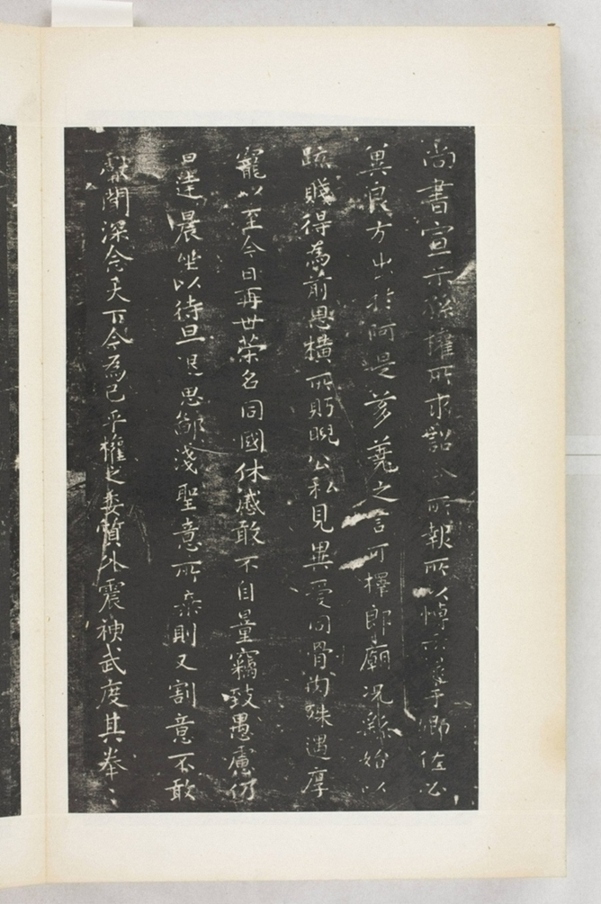 尚書宣示孫權所求詔令所報所以博示逮于卿佐必
冀良方出於阿是芻蕘之言可擇郎廟況繇始以
疏賤得為前恩橫所盱睨公私見異愛同骨肉殊遇厚
寵以至今日再世榮名同國休慼敢不自量竊致愚慮仍
日達晨坐以待旦退思鄙淺聖意所棄則又割意不敢
獻聞深念天下今為已平權之委質外震神武度其拳〻